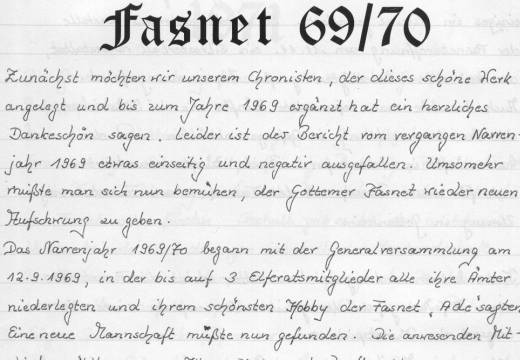 Fasnet 69/70
Zunächst möchten wir unserem Chronisten, der dieses schöne Werk
angelegt und bis zum Jahre 1969 ergänzt hat ein herzliches
Dankeschön sagen. Leider ist der Bericht vom vergangen Narren-
jahr 1969 etwas einseitig und negativ ausgefallen. Umsomehr
müßte man sich nun bemühen, der Gottemer Fasnet wieder neuen
Aufschwung zu geben.
Das Narrenjahr 1969/70 begann mit der Generalversammlung am
12.9.1969, in der bis auf 3 Elferatsmitglieder alle ihre Ämter
niederlegten und ihrem schönsten Hobby der Fasnet, Ade sagten
Eine neue Mannschaft müßte nun gefunden. Die anwesenden Mit-